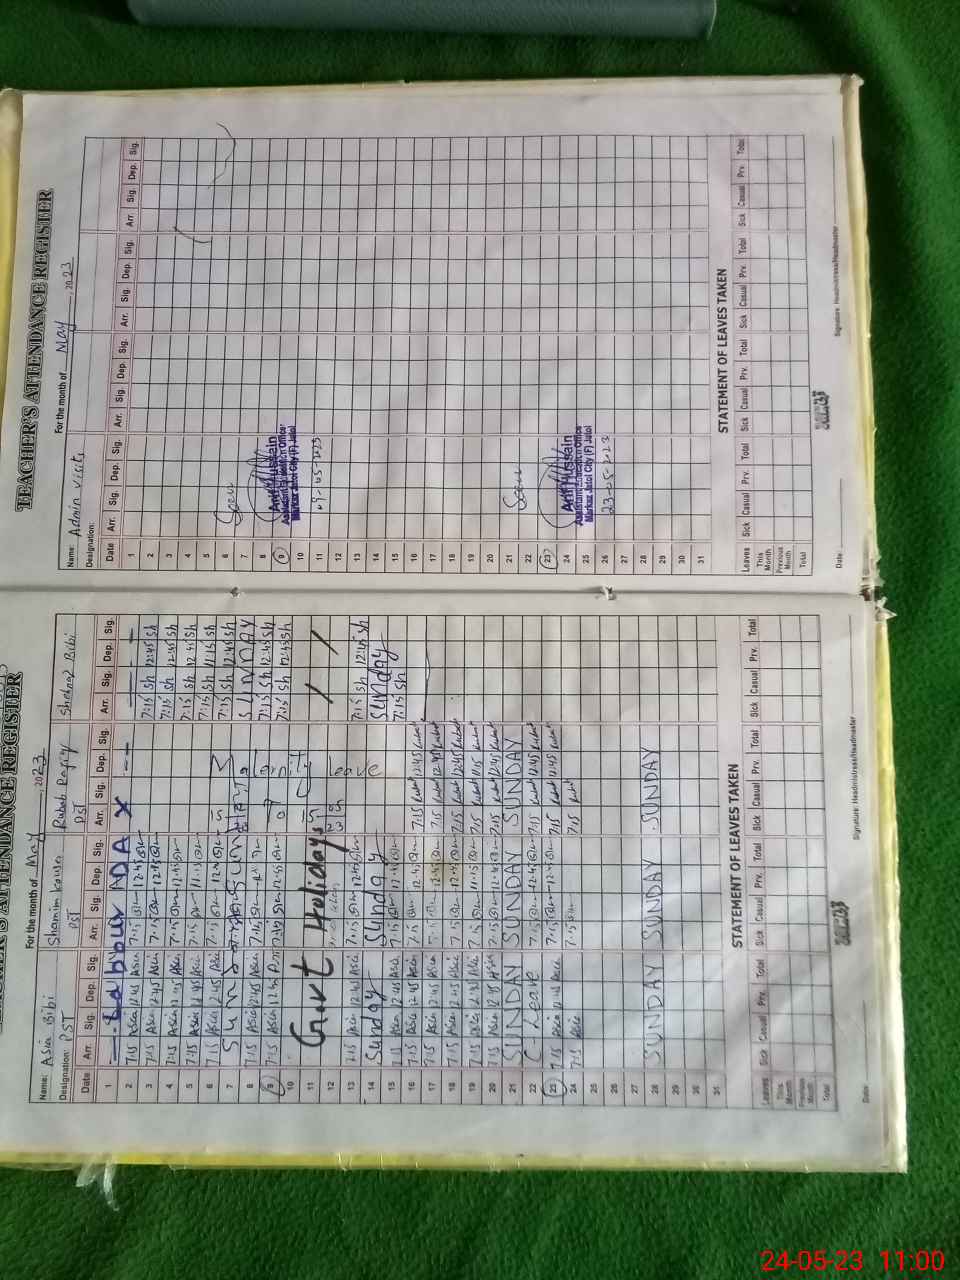 TEACHER'S ATTENDANCE REGISTER
For the month of May, 2023
Name: Asia Bibi Shamim kousar Rubab Shahnaz Bibi
Designation: PST PST PST
Date Arr. Sig. Dep. Sig. Arr. Sig. Dep. Sig. Arr. Sig. Dep. Sig. Arr. Sig. Dep. Sig.
1 Labour
2 7:15 Asia 12:45 Asia 7:15 12:45 7:15 Sh 12:45 Sh
3 7:15 Asia 12:45 Asia 7:15 12:45 7:15 Sh 12:45 Sh
4 7:15 Asia 12:45 Asia 7:15 12:45 7:15 Sh 12:45 Sh
5 7:15 Asia 7:15 11:15 7:15 Sh 11:15 Sh
6 7:15 Asia 12:45 Asia 7:15 12:45 7:15 Sh 12:45 Sh
7 Sunday SUNDAY
8 7:15 Asia 12:45 Asia 7:15 Sh 12:45 Sh
9 7:15 Asia 12:45 7:15 Sh 12:45 Sh
10
11 Govt Holidays
12 Leave
13 7:15 Asia 12:45 Asia 7:15 12:45 7:15 Sh 12:45 Sh
14 Sunday Sunday Sunday
15 7:15 Asia 12:45 Asia 7:15 12:45 7:15 Sh
16 7:15 Asia 12:45 Asia 7:15 12:45 7:15 Rubab 12:45 Rubab
17 7:15 Asia 12:45 Asia 7:15 12:45 7:15 Rubab 12:45 Rubab
18 7:15 Asia 12:45 Asia 7:15 12:45 7:15 Rubab 12:45 Rubab
19 7:15 Asia Asia 7:15 11:15 7:15 Rubab 11:15 Rubab
20 7:15 Asia 12:45 Asia 7:15 12:45 7:15 Rubab 12:45 Rubab
21 SUNDAY SUNDAY SUNDAY
22 C-Leave 7:15 12:45 7:15 Rubab 12:45 Rubab
23 7:15 Asia 12:45 Asia 7:15 12:45 7:15 Rubab 12:45 Rubab
24 7:15 Asia 7:15 7:15 Rubab
25
26
27
28 SUNDAY SUNDAY SUNDAY
29
30
31
STATEMENT OF LEAVES TAKEN
Leaves Sick Casual Prv. Total Sick Casual Prv. Total Sick Casual Prv. Total Sick Casual Prv. Total
This Month
Previous Month
Total
Date Signature: Headmistress/Headmaster
TEACHER'S ATTENDANCE REGISTER
For the month of May, 2023
Name: Admin visits
Designation:
Date Arr. Sig. Dep. Sig. Arr. Sig. Dep. Sig. Arr. Sig. Dep. Sig. Arr. Sig. Dep. Sig.
1
2
3
4
5
6 Seen
7
8
9 Hussain
10 Assistant Education Officer
Markaz Jatoi City (F) Jatoi
11
12
13
14
15
16
17
18
19
20
21
22 Seen
23
24 Hussain
Assistant Education Officer
25 Markaz Jatoi City (F) Jatoi
26 23-05-2023
27
28
29
30
31
STATEMENT OF LEAVES TAKEN
Leaves Sick Casual Prv. Total Sick Casual Prv. Total Sick Casual Prv. Total Sick Casual Prv. Total
This Month
Previous Month
Total
Date Signature: Headmistress/Headmaster
24-05-23 11:00